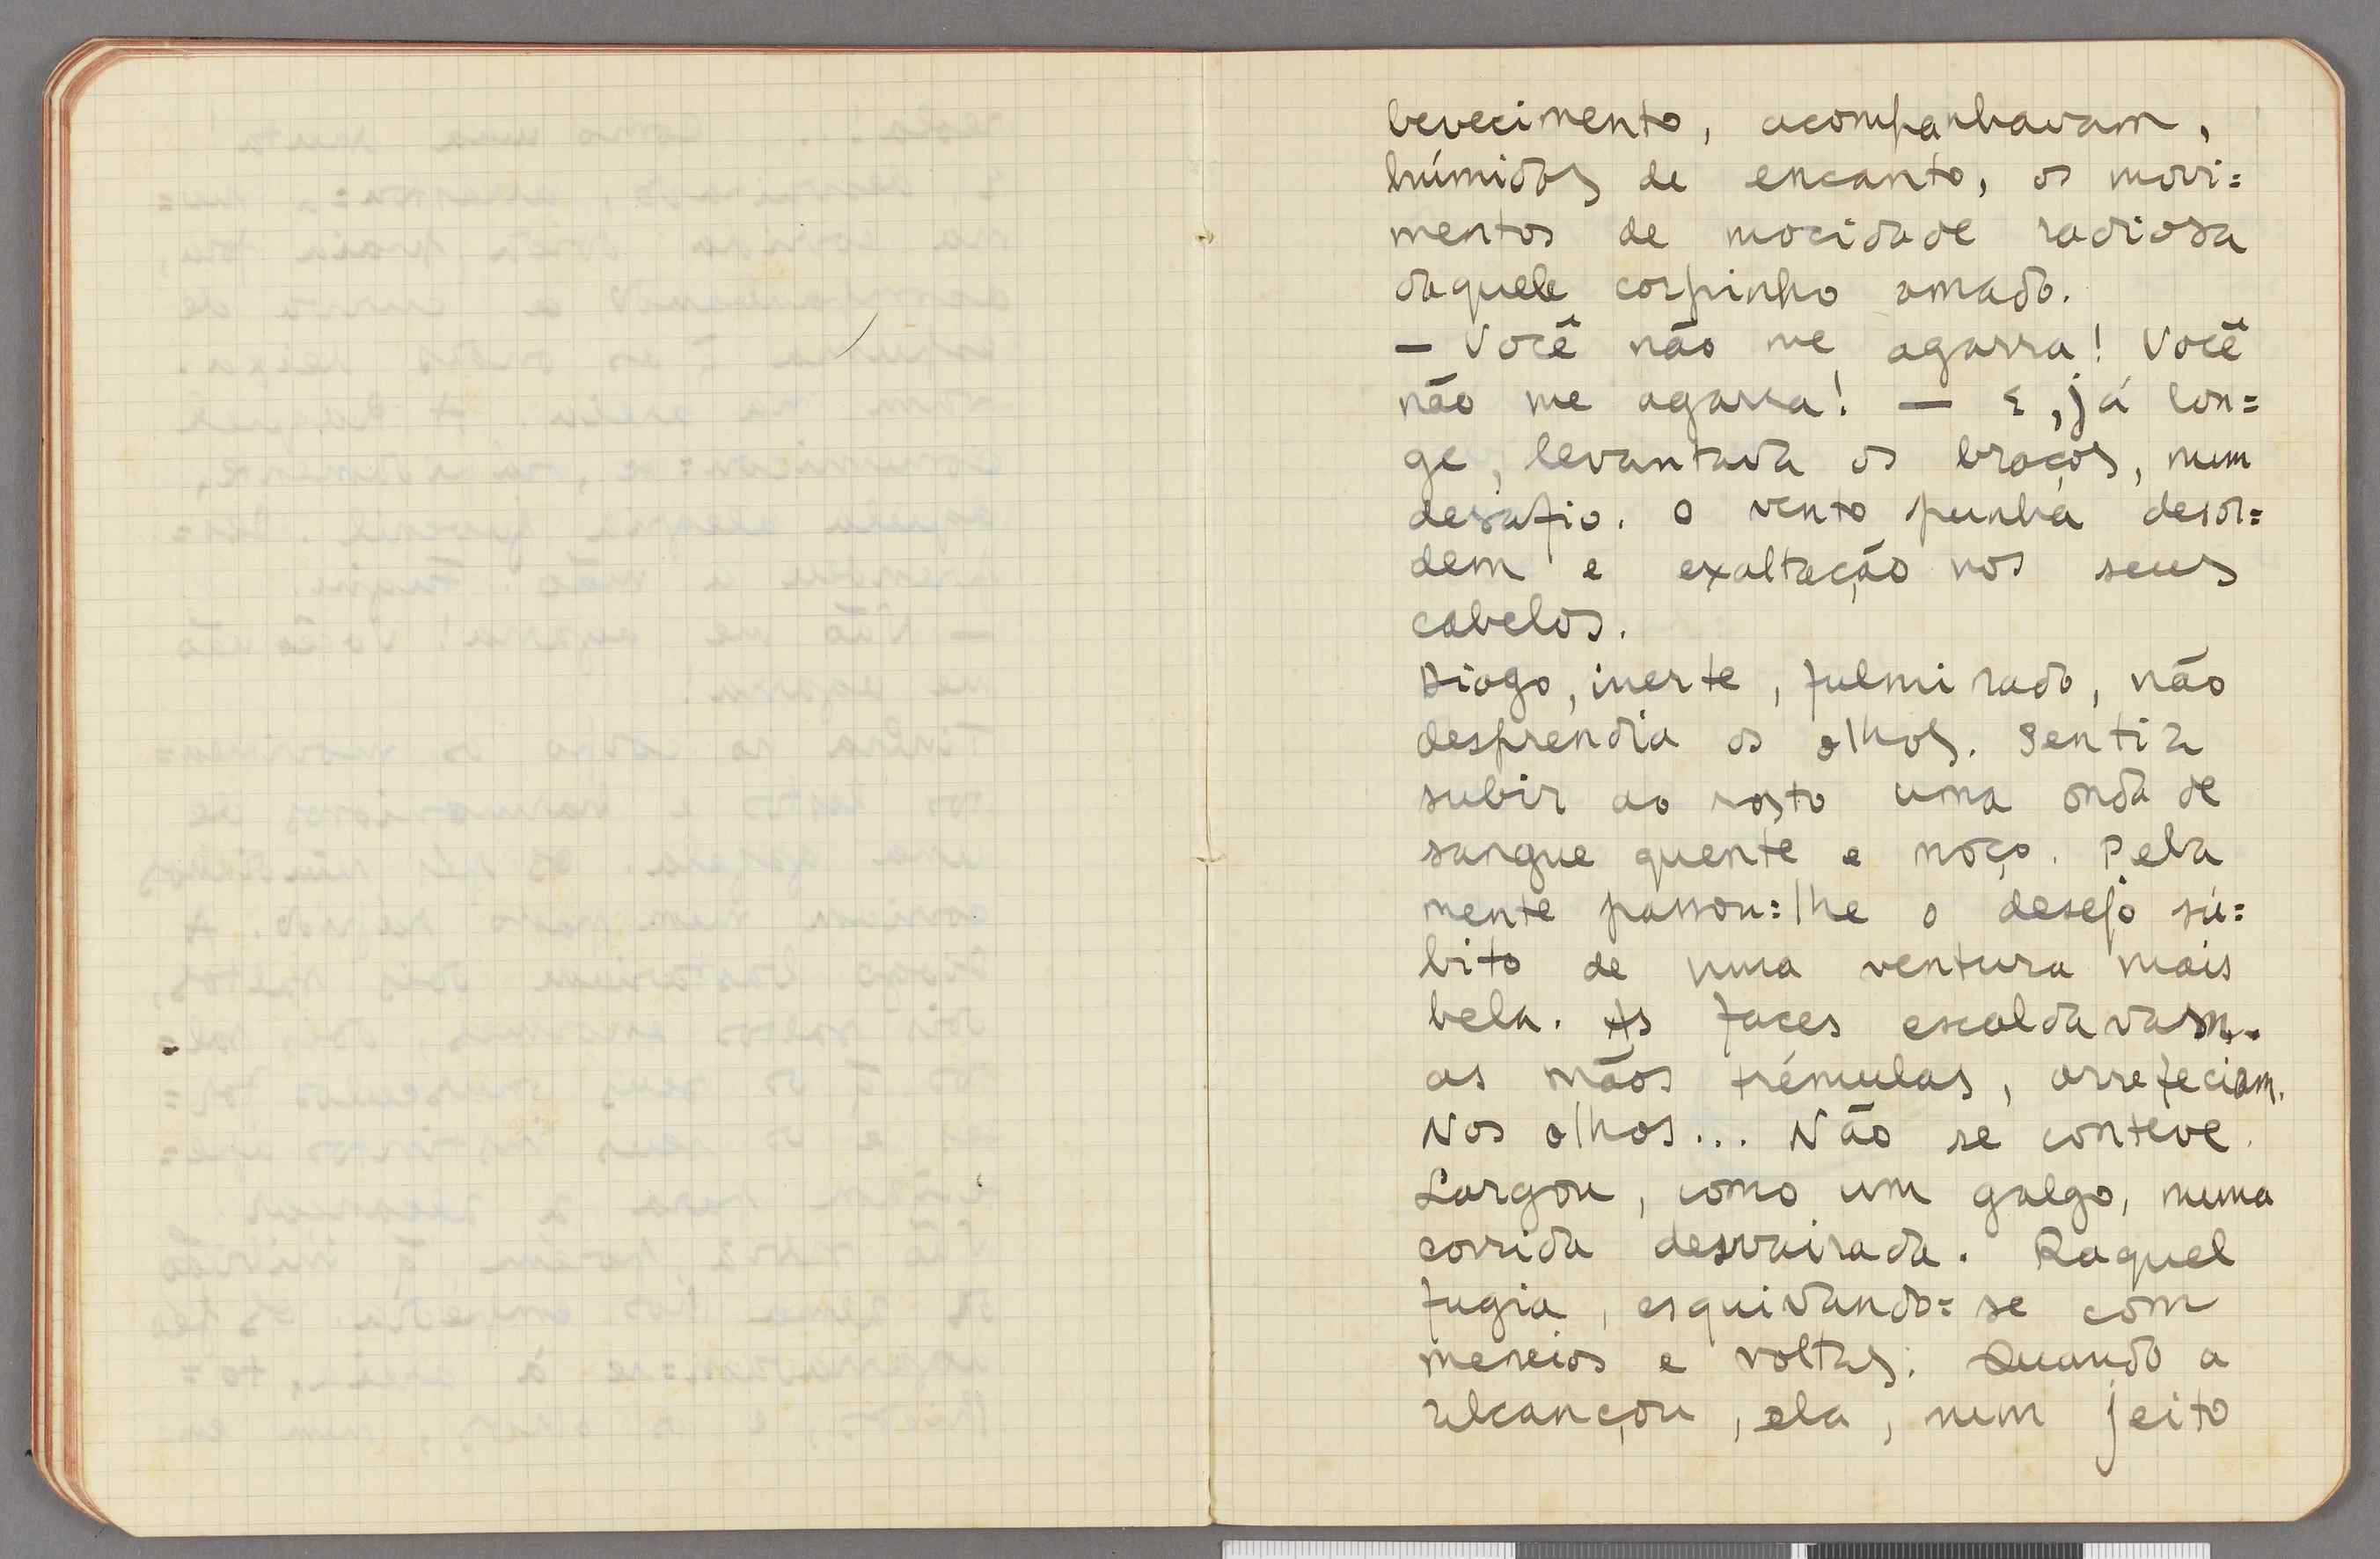 bevecimento, acompanhavam,
húmidos de encanto, os movi=
mentos de mocidade radiosa
daquele corpinho amado.
— Você não me agarra! Você
não me agarra! — E, já lon=
ge, levantava os braços, num
desafio. O vento punha desor=
dem e exaltação nos seus
cabelos.
Diogo, inerte, fulminado, não
desprendia os olhos. Sentia
subir ao rosto uma onda de
sangue quente e moço. Pela
mente passou=lhe o desejo sú=
bito de uma ventura mais
bela. As faces escaldavam.
as mãos trémulas, arrefeciam.
Nos olhos... Não se conteve.
Largou, como um galgo, numa
corrida desvairada. Raquel
fugia, esquivando=se com
meneios e voltas. Quando a
alcançou, ela, num jeito